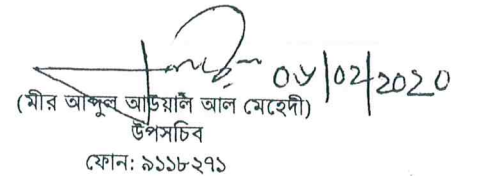 ০৮/02/2020
(মীর আব্দুল আউয়াল আল মেহেদী)
উপসচিব
ফোন: ৯১১৮২৭১